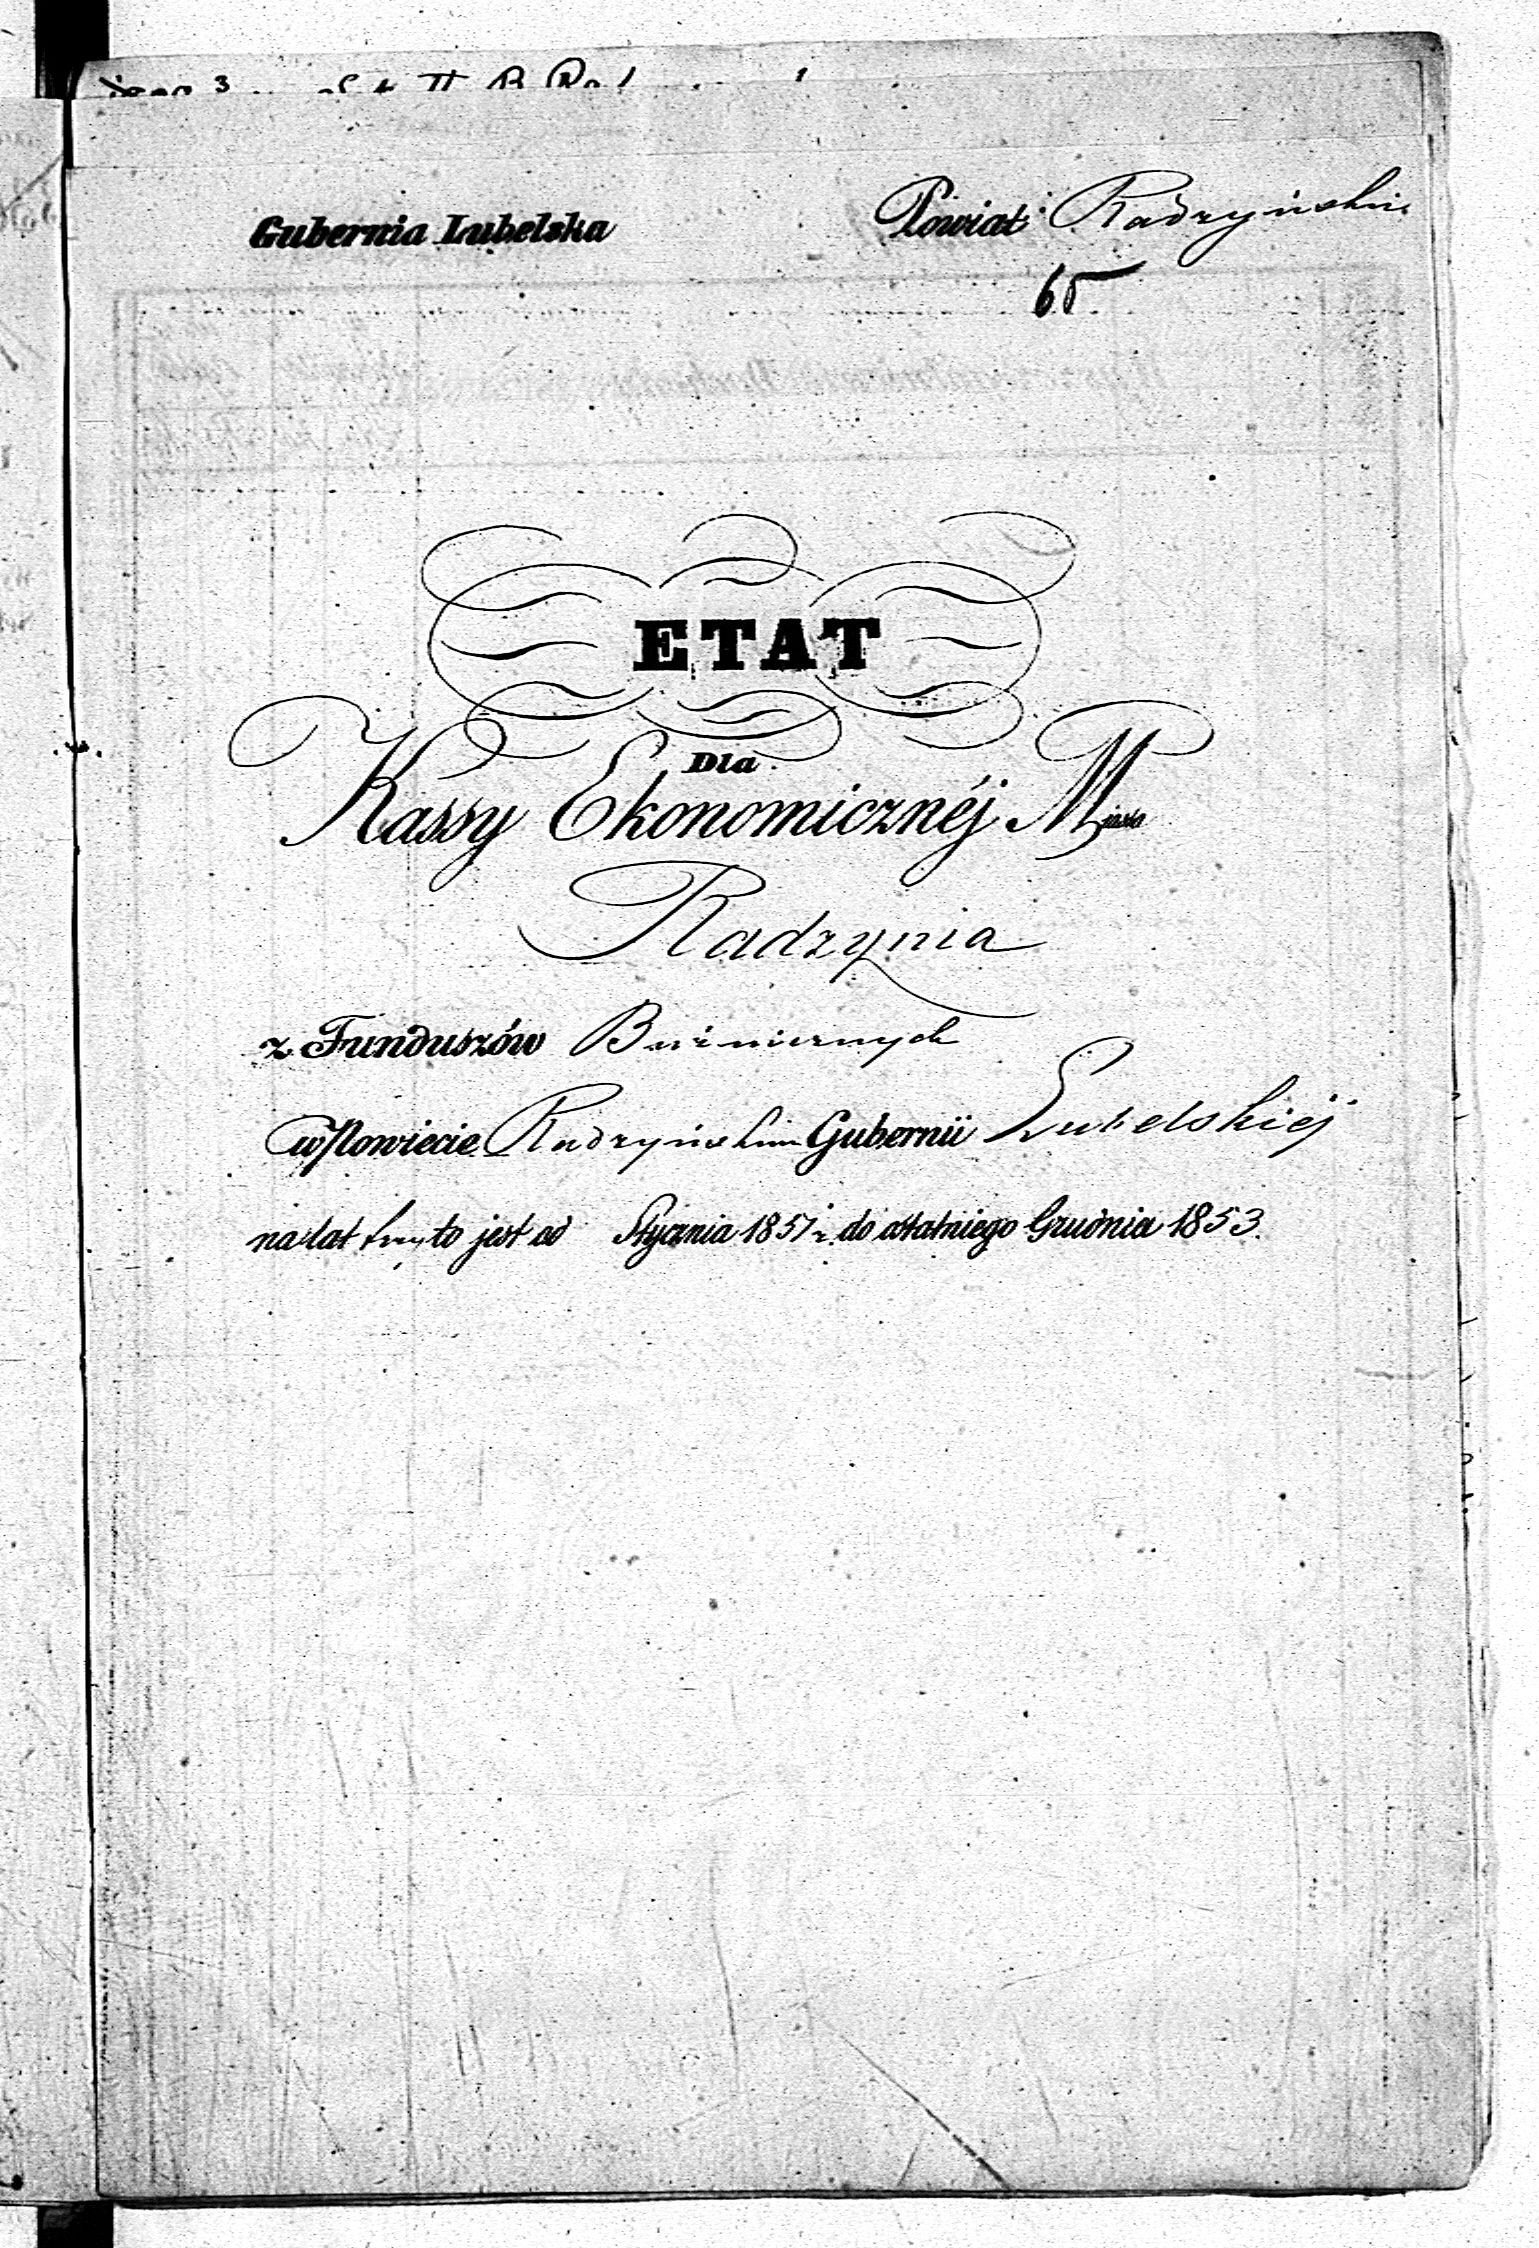 Gubernia Lubelska
Powiat Radzyński
65
ETAT
Dla
Kassy Ekonomicznéj Miasta
Radzynia
z Funduszów Bużnicznych
w Powiecie Radzyńskim Gubernii Lubelskiéj
na lat trzy to jest od Stycznia 1851 r. do ostatniego Grudnia 1853.